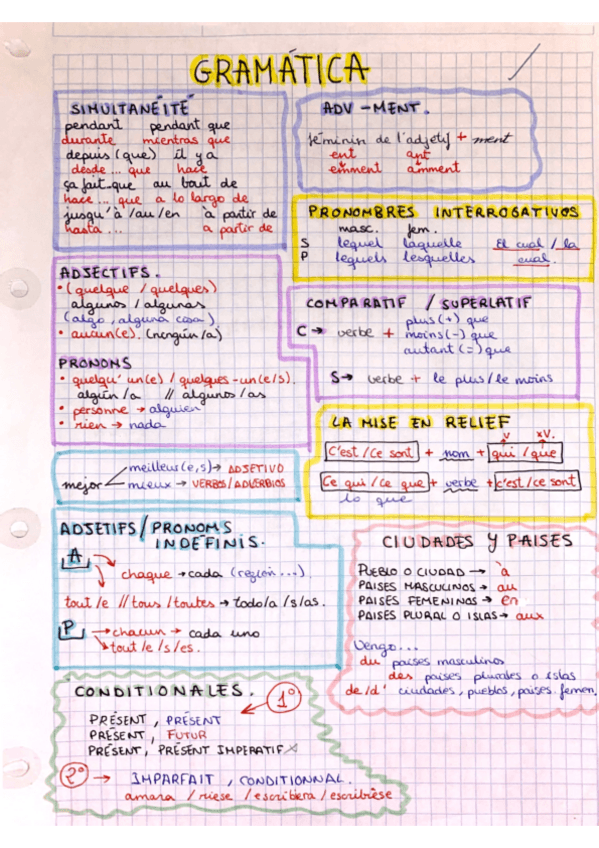 GRAMÁTICA
SIMULTANÉITÉ
pendant pendant que
durante mientras que
depuis (que) il y a
desde ... que hace
ça fait-que au bout de
hace ... que a lo largo de
jusqu'à /au/en à partir de
hasta ... a partir de
ADV -MENT.
féminin de l'adjetif + ment
ent ant
emment amment
PRONOMBRES INTERROGATIVOS
masc. fem.
S lequel laquelle El cual / la
P lequels lesquelles cual.
ADJECTIFS.
• (quelque / quelques)
algunos / algunas
(algo, alguna cosa)
• aucun(e). (ningún/a)
PRONONS
• quelqu'un(e) / quelques-un(e/s).
algún /a // algunos /as
• personne → alguien
• rien → nada
COMPARATIF / SUPERLATIF
plus (+) que
C → verbe + moins (-) que
autant (=) que
S → verbe + le plus / le moins
LA MISE EN RELIEF
V XV.
C'est /Ce sont + nom + qui / que
Ce qui / ce que + verbe + c'est /ce sont
lo que
mejor
meilleur(e,s) → ADJETIVO
mieux → VERBOS/ADVERBIOS
ADSETIFS / PRONOMS
INDÉFINIS.
A
chaque → cada (región ...).
tout /e // tous / toutes → todo/a /s/as.
P → chacun → cada uno
tout /e /s /es.
CIUDADES Y PAISES
PUEBLO O CIUDAD → à
PAISES MASCULINOS → au
PAISES FEMENINOS → en
PAISES PLURAL O ISLAS → aux
Vengo...
du países masculinos
des países plurales o islas
de/d' ciudades, pueblos, países femen.
CONDITIONALES. 1º
PRÉSENT, PRÉSENT
PRÉSENT, FUTUR
PRÉSENT, PRÉSENT IMPERATIF
2º → IMPARFAIT, CONDITIONNAL.
amara / riese / escribiera / escribiese